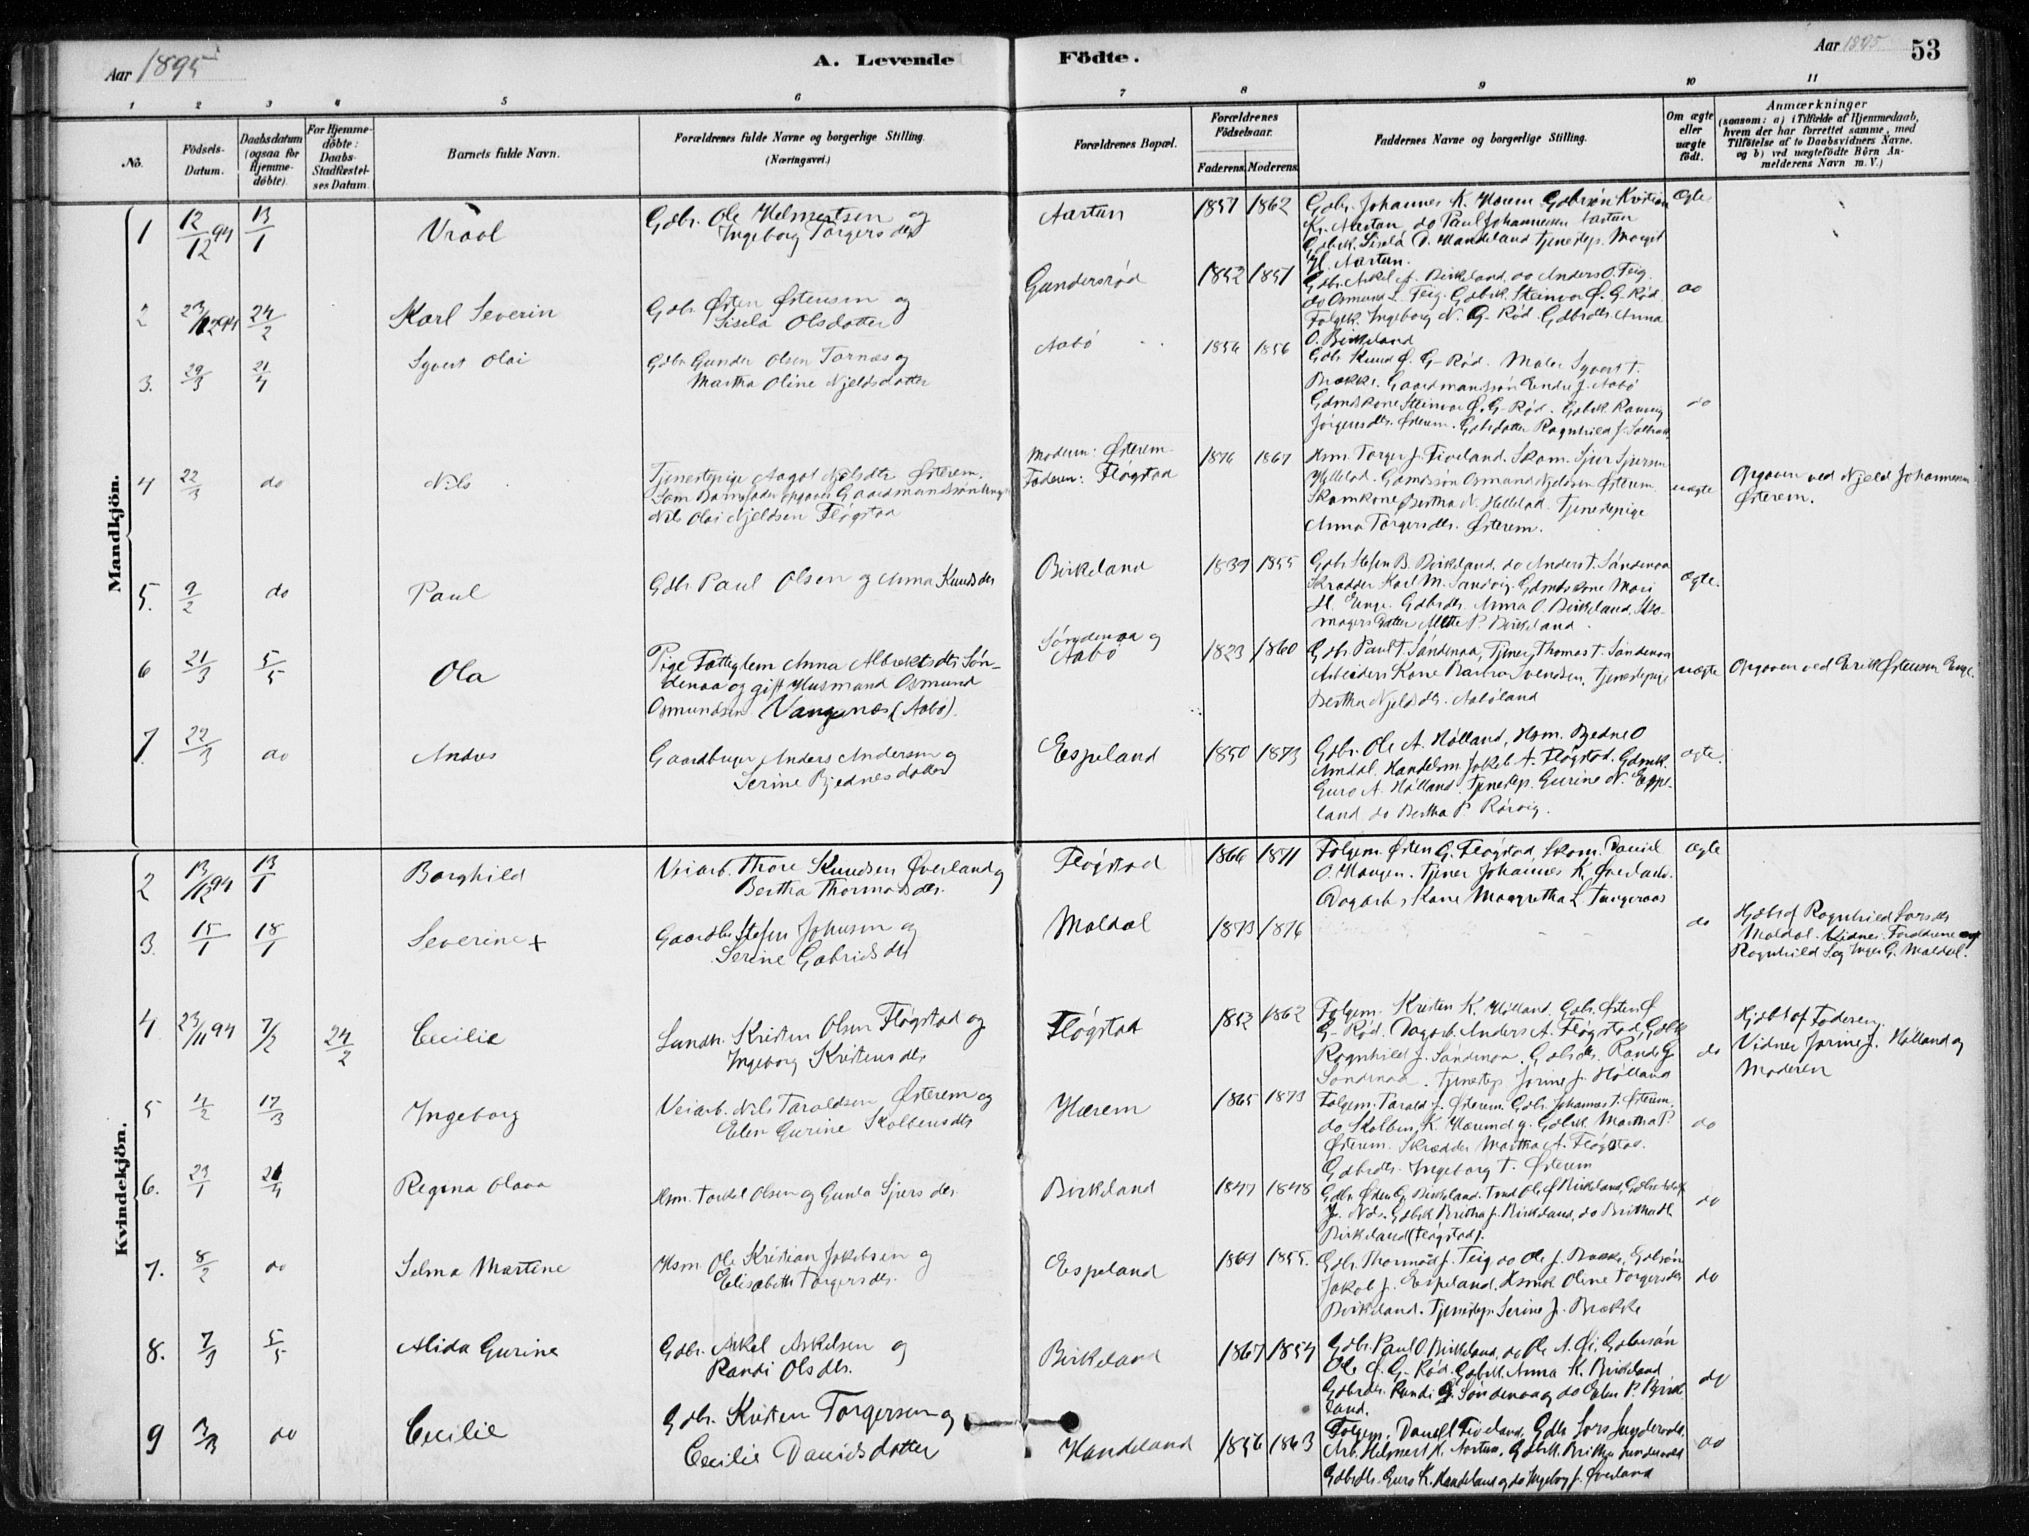 Aar 1895
A. Levende Födte.
Aar 1895
53
1 2 3 4 5 6 7 8 9 10 11
No.
Födsels-Datum.
Daabsdatum (ogsaa for Hjemme-döbte).
For Hjemme-döbte: Daabs-Stadfæstel-ses Datum
Barnets fulde Navn.
Forældrenes fulde Navne og borgerlige Stilling. (Næringsvei.)
Forældrenes Bopæl.
Forældrenes Födselsaar.
Faderens. Moderens.
Faddernes Navne og borgerlige Stilling.
Om ægte eller uægte födt.
Anmærkninger
(saasom: a) i Tilfælde af Hjemmedaab,
hvem der har forrettet samme, med
Tilföielse af to Daabsvidners Navne.
og b) ved uægtefödte Börn An-
melderens Navn m. V.)
Mandkjön.
1 12/12 94 13/1 Vraal
Gdbr. Ole Helmertsen og
Ingeborg Torgersdtr
Aartun 1857 1862
Gdbr. Johannes K. Hærem Gdbrsøn Kristian
Kr. Aartun do Paul Johannessen Aartun
Gdbrk. Sisela D. Handeland Tjenestep. Margit
H. Aartun.
Ægte
2 23/12 94 24/2 Karl Severin
Gdbr. Østen Østensen og
Sisela Olsdatter
Gundersrød 1852 1857
Gdbr. Askel A. Birkeland, do Anders O. Teig.
do Osmund L. Teig. Gdbrk. Steinvor Ø. G-Rød.
Folgek. Ingeborg N. G-Rød. Gdbrdtr. Anna
O. Birkeland
do
3. 29/3 21/4 Syvert Olai
Gdbr Gunder Olsen Tornæs og
Martha Oline Njeldsdatter
Aabø 1856 1856
Gdbr. Knud Ø. G-Rød. Maler Syvert T.
Brække. Gaardmandssøn Endre J. Aabø
Gdmdskone Steinvor Ø. G-Rød. Gdbrk. Ranveig
Jørgensdtr. Østerem. Gdbrdatter Ragnhild J.
do
4 22/3 do Nils
Tjenestepige Aagot Njelsdtr Østerem.
Som Barnefader opgaves Gaardmandssøn Ungk.
Nils Olai Njeldsen Fløgstad
Moderen: Østerem
Faderen: Fløgstad
1876 1867
Hsm. Torger J. Tioeland. Skom. Sjur Sjursen
Hellelad. Gdmdssøn Osmund Njeldsen Østerem.
Skomkone Bertha N. Hellelad. Tjenestepige
Anna Torgersdtr. Østerem.
uægte
Opgaven ved Njeld Johannessen
Østerem.
5. 9/2 do Paul
Gdbr Paul Olsen og Anna Knudsdtr
Birkeland 1839 1855
Gdbr Stefen B. Birkeland, do Anders T. Søndenaa
Skrædder Karl M. Sandvig. Gdmdskone Mari
H. Enge. Gdbrdtr. Anna O. Birkeland, Sko-
magers Datter Mette P. Birkeland.
ægte.
6 21/3 5/5 Ola
Pige Fattiglem Anna Albrektsdtr Søn-
denaa og gift Husmand Osmund
Osmundsen Vangsnes (Aabø).
Søndenaa og
Aabø
1823 1860
Gdbr Paul T. Søndenaa, Tjener Thomas T. Søndenaa
Arbeiders Kone Barbra Svendsen, Tjenestepige
Bertha Njeldsdtr. Aaboland
uægte
Opgaven ved Erik Østensen Enge.
7. 22/3 do Anders
Gaardbruger Anders Andersen og
Serine Bjednesdatter
Espeland 1850 1873
Gdbr. Ole A. Hølland, Hsm. Bjedne O
Amdal. Handelsm. Jakob A. Fløgstad. Gdmk.
Guro A. Hølland. Tjenestep. Gurine N. Espe-
land do Bertha P. Rørvig.
ægte.
Kvindekjön.
2 13/12 94 13/1 Borghild
Veiarb. Thore Knudsen Øverland og
Bertha Thormodsdtr.
Fløgstad 1866 1871
Folgem. Østen G. Fløgstad, Skom. Daniel
O. Haugen. Tjener Johannes K. Øverland.
Dagarb.s Kone Margretha L. Tungeraas
ægte
3. 15/1 18/1 Severine +
Gaardbr Stefen Johnsen og
Serine Gabrielsdtr
Maldal 1873 1876
do
Hjdbt af Ragnhild Larsdtr
Maldal. Vidner: Forældrene og
Ragnhild L og Inger G. Maldal.
4. 23/11 94 7/2 24/2 Cecilie
Landh. Kristen Olsen Fløgstad og
Ingeborg Kristensdtr
Fløgstad 1852 1862
Folgem. Kristen K. Hølland, Gdbr. Østen Ø
G-Rød. Dagarb. Anders A. Fløgstad, Gdbrk
Ragnhild J. Søndenaa. Gdbrdtr. Randi G.
Søndenaa. Tjenestep Jorine J. Hølland
do
Hjdbt af Faderen.
Vidner Jorine J. Hølland og
Moderen
5 4/2 17/3 Ingeborg
Veiarb. Nils Taraldsen Østerem og
Elen Gurine Skolbensdtr
Hærem 1865 1873
Folgem. Tarald J. Østerem. Gdbr. Johannes T. Østerem.
do Skolben K. Hærem og Gdbrk Martha P.
Østerem. Skrædder Martha A. Fløgstad.
Gdbrdtr. Ingeborg T. Østerem
do
6. 23/1 21/4 Regina Olava
Hsm. Torkel Olsen og Gunla Sjursdtr
Birkeland 1847 1848
Gdbr. Østen G. Birkeland.
Birkeland (Fløgstad).
do
7. 8/2 do Selma Martine
Hsm. Ole Kristian Jakobsen og
Elisabeth Torgersdtr.
Espeland 1869 1855.
Gdbr. Thormod J. Teig do Ole J. Brække, Gdbrsøn
Jakob J. Espeland. Hsmk Oline Torgersdtr
Birkeland. Tjenestep. Serine J. Brække
do
8. 7/3 5/5 Alida Gurine
Gdbr. Askel Askelsen og
Randi Olsdtr.
Birkeland 1867 1854
Gdbr. Paul O Birkeland, do Ole A. Øi, Gdbrsøn
Ole Ø. G-Rød. Gdbrk. Anna K. Birkeland
Gdbrdtr. Randi G. Søndenaa og do Elen P. Birke-
land.
do
9 3/3 do Cecilie
Gdbr. Kristen Torgersen og
Cecilie Danielsdatter
Handeland 1856 1863
Folgem. Daniel Tioeland, Gdbr Lars Sundevold.
Arb. Helmert K. Aartun. Gdbrk. Britha Sundevold
Gdbrdtr. Guro K. Handeland og do Ingeborg J. Øverland
do